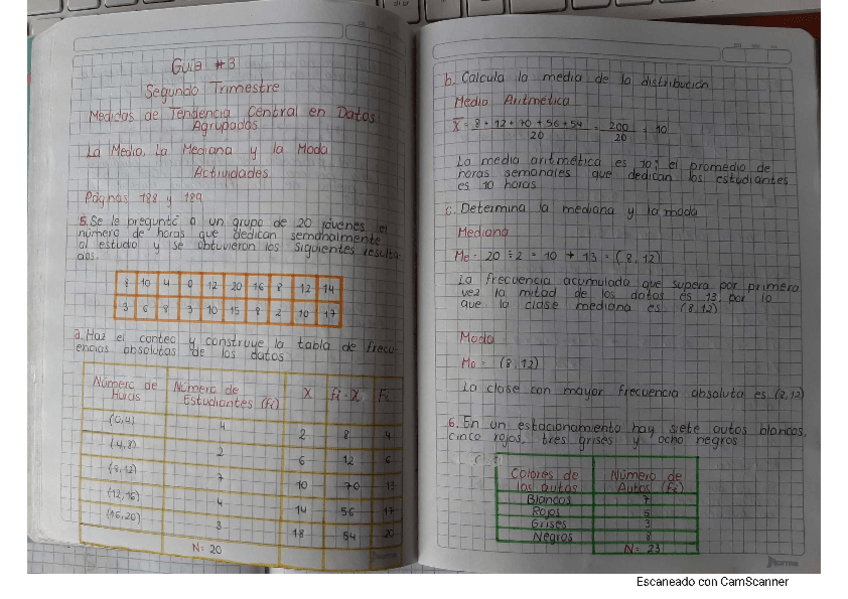 Guía #3
Segundo Trimestre
Medidas de Tendencia Central en Datos
Agrupados
La Media, La Mediana y la Moda
Actividades
Páginas 188 y 189
5. Se le preguntó a un grupo de 20 jóvenes el
número de horas que dedican semanalmente
al estudio y se obtuvieron los siguientes resulta-
dos.
8 10 4 0 12 20 16 8 12 14
3 6 8 3 10 15 8 2 10 17
a. Haz el conteo y construye la tabla de frecu-
encias absolutas de los datos
Número de Horas Número de Estudiantes (Fi) X Fi · X Fi
(0,4) 4 2 8 4
(4,8) 2 6 12 6
(8,12) 7 10 70 13
(12,16) 4 14 56 17
(16,20) 3 18 54 20
N= 20
b. Calcula la media de la distribución
Media Aritmética
X = 8 + 12 + 70 + 56 + 54 / 20 = 200 / 20 = 10
La media aritmética es 10; el promedio de
horas semanales que dedican los estudiantes
es 10 horas
c. Determina la mediana y la moda
Mediana
Me = 20 ÷ 2 = 10 + 13 = (8,12)
La frecuencia acumulada que supera por primera
vez la mitad de los datos es 13, por lo
que la clase mediana es (8,12)
Moda
Mo = (8,12)
La clase con mayor frecuencia absoluta es (8,12)
6. En un estacionamiento hay siete autos blancos,
cinco rojos, tres grises y ocho negros
Colores de los autos Número de Autos (Fi)
Blancos 7
Rojos 5
Grises 3
Negros 8
N= 23
Escaneado con CamScanner